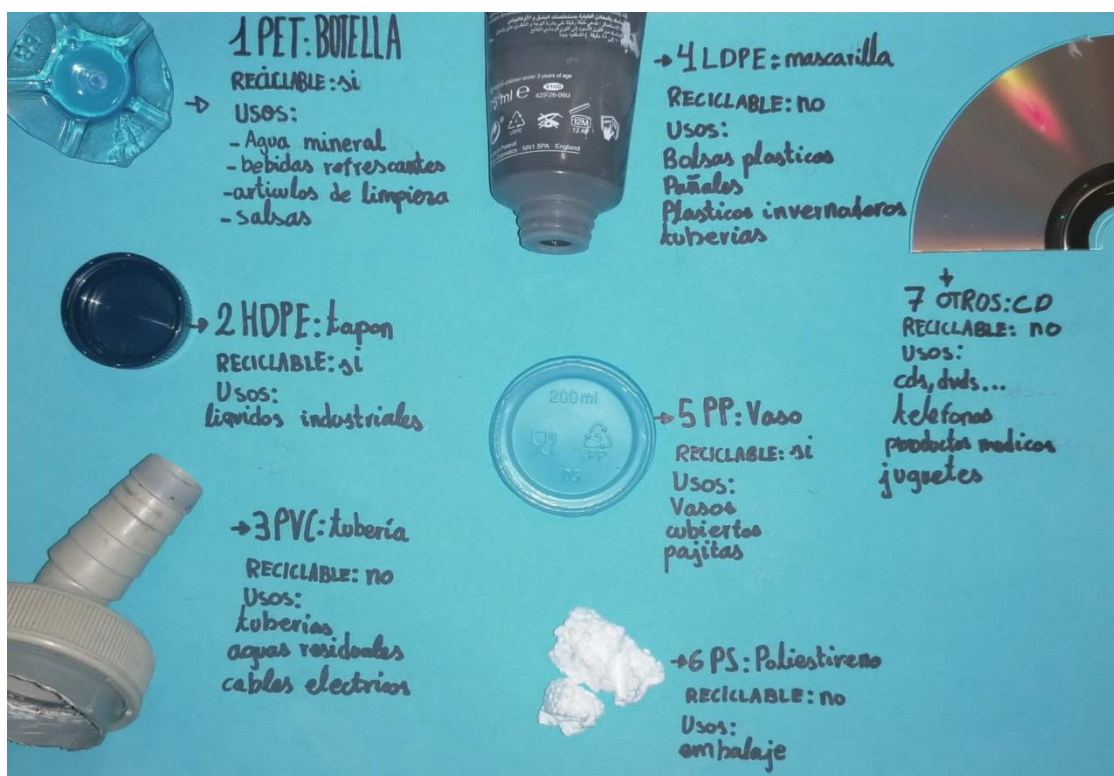 1 PET: BOTELLA
RECICLABLE: si
USOS:
- Agua mineral
- bebidas refrescantes
- articulos de limpieza
- salsas
2 HDPE: tapon
RECICLABLE: si
Usos:
liquidos industriales
3 PVC: tubería
RECICLABLE: no
Usos:
tuberias
aguas residuales
cables electricos
children under 3 years of age
75ml e
420-26-06U
LDPE
12M
NN1 5PA - England
4 LDPE: mascarilla
RECICLABLE: no
Usos:
Bolsas plasticas
Pañales
Plasticos invernaderos
tuberias
200ml
5
PP
5 PP: Vaso
RECICLABLE: si
Usos:
Vasos
cubiertos
pajitas
6 PS: Poliestireno
RECICLABLE: no
Usos:
embalaje
7 OTROS: CD
RECICLABLE: no
Usos:
cds, dvds...
telefonos
productos medicos
juguetes